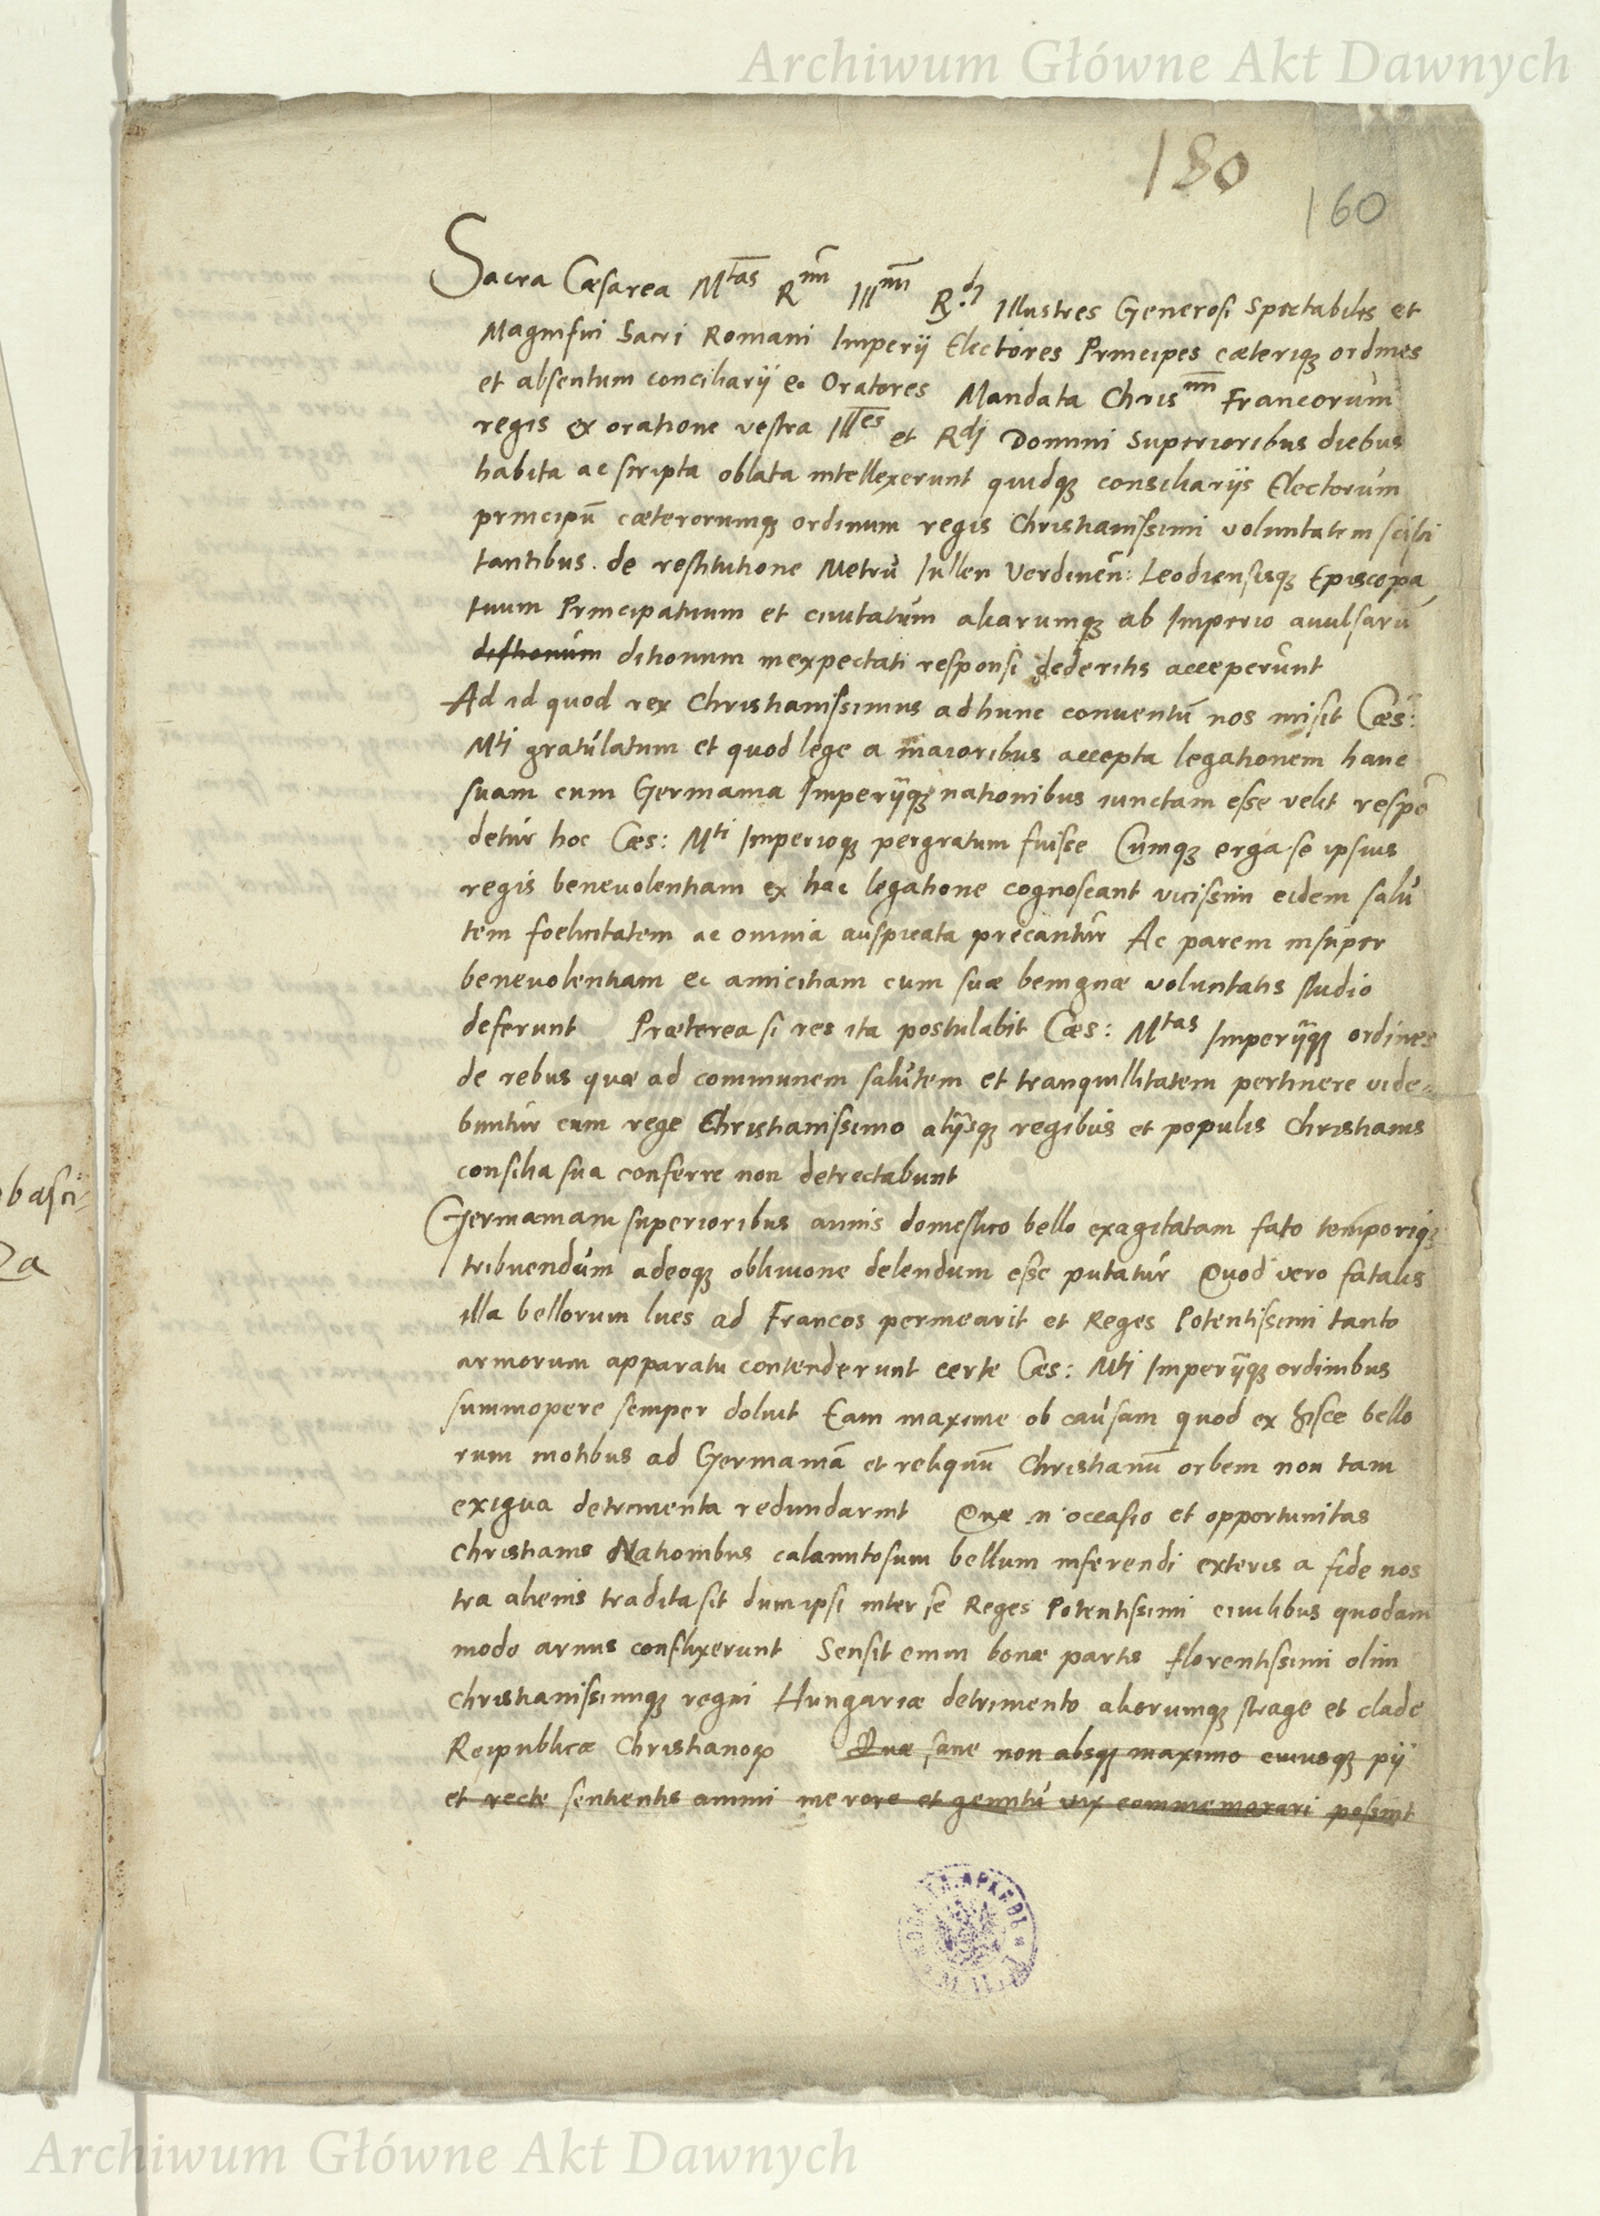 Archiwum Główne Akt Dawnych
180
160
Sacra Cæsarea Mtas Rmi Illmi Rdi Illustres Generosi Spectabiles et
Magnifici Sacri Romani Imperij Electores Principes cæteriq; ordines
et absentum conciliarij ec Oratores Mandata Chrismi Francorum
regis ex oratione vestra Illes et Rdi Domini Superioribus diebus
habita ac scripta oblata intellexerunt quidq; consiliarijs Electorum
principū cæterorumq; ordinum regis Christianissimi voluntatem scisci
tantibus de restitutione Meteñ Tullen Verdunen: Leodiensisq; Episcopa
tuum Principatuum et ciuitatum aliarumq; ab Imperio auulsarū
distionum ditionum inexpectati responsi dederitis acceperunt
Ad id quod rex Christianissimus ad hunc conuentū nos misit Cæs:
Mti gratulatum et quod lege a maioribus accepta legationem hanc
suam cum Germania Imperijq; nationibus iunctam esse velit respō
detur hoc Cæs: Mti Imperioq; pergratum fuisse Cumq; erga se ipsius
regis beneuolentiam ex hac legatione cognoscant vicissim eidem salu
tem foelicitatem ac omnia auspicata precantur Ac parem insuper
beneuolentiam ec amicitiam cum suæ benignæ voluntatis studio
deferunt Præterea si res ita postulabit Cæs: Mtas Imperijq; ordines
de rebus quæ ad communem salutem et tranquillitatem pertinere vide-
buntur cum rege Christianissimo alijsq; regibus et populis Christianis
consilia sua conferre non detrectabunt
Germaniam superioribus annis domestico bello exagitatam fato temporiq;
tribuendum adeoq; obliuione delendum esse putatur Quod vero fatalis
illa bellorum lues ad Francos permearit et Reges Potentissimi tanto
armorum apparatu contenderunt certe Cæs: Mti Imperijq; ordinibus
summopere semper doluit Eam maxime ob causam quod ex hisce bello
rum motibus ad Germaniā et reliquū Christianū orbem non tam
exigua detrimenta redundarint Quæ n occasio et opportunitas
Christianis Nationibus calamitosum bellum inferendi exteris a fide nos
tra alienis tradita sit dum ipsi inter se Reges Potentissimi ciuilibus quodam
modo armis conflixerunt Sensit enim bonæ partis florentissimi olim
Christianissimiq; regni Hungariæ detrimento aliorumq; strage et clade
Reipublicæ Christianor
Quæ sane non absq; maximo cuiusq; pij
et recte sentientis animi merore et gemitu vix commemorari possint
basci-
2a
Archiwum Główne Akt Dawnych